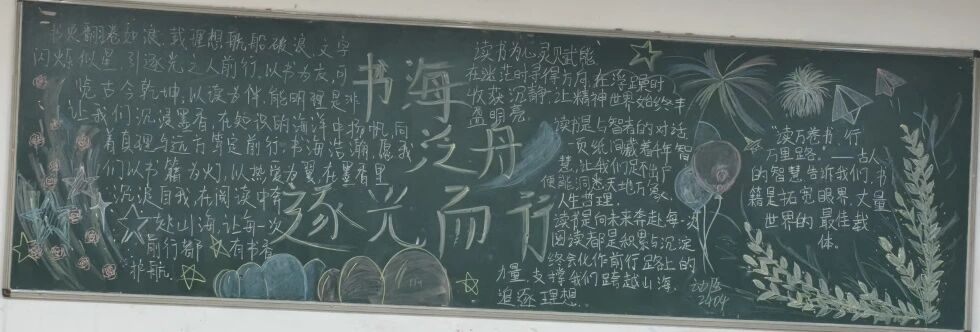 书页翻卷如浪，载理想航船破浪，文字
闪烁似星，引逐光之人前行。以书为友，可
览古今乾坤，以读为伴，能明理是非
让我们沉浸墨香，在知识的海洋中扬帆，向
着真理与远方笃定前行。书海浩瀚，愿我
们以书籍为灯，以热爱为翼在墨香里
沉淀自我在阅读中奔
赴山海，让每一次
前行都有书香
护航。
书海
泛舟
逐光而行
读书为心灵赋能
在迷茫时寻得方向，在浮躁时
收获沉静，让精神世界始终丰
盈明亮。
读书是与智者的对话
一页纸间藏着千年智
慧，让我们足不出户
便能洞悉天地万象、
人生哲理。
读书是向未来奔赴每一次
阅读都是积累与沉淀
终会化作前行路上的
力量 支撑我们跨越山海，
追逐理想
"读万卷书，行
万里路。"——古人
的智慧告诉我们，书
籍是拓宽眼界、丈量
世界的最佳载
体。
动医
2404